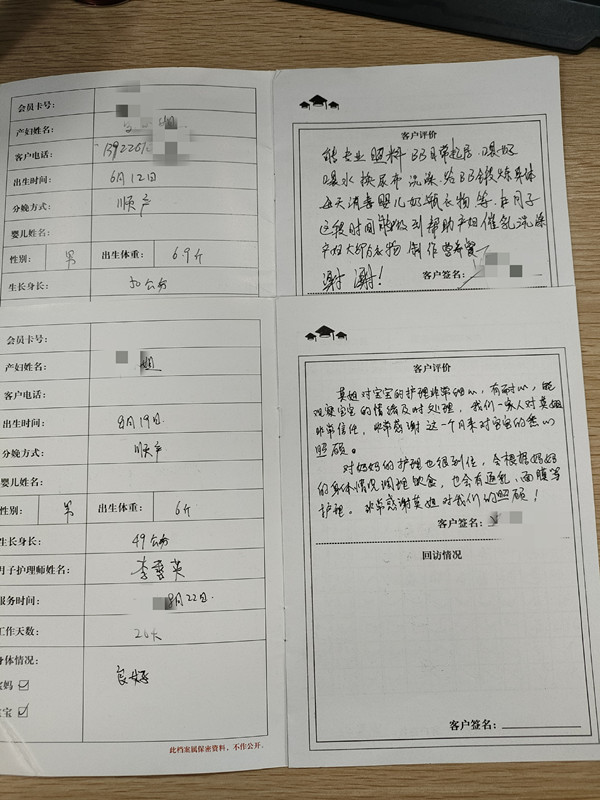 会员卡号:
产妇姓名: 姐
客户电话: 1392261
出生时间: 6月12日
分娩方式: 顺产
婴儿姓名:
性别: 男 出生体重: 6.9斤
生长身长: 50公分
客户评价
能专业照料BB日常起居.喂奶
喂水换尿布洗澡.给BB锻炼身体
每天消毒婴儿奶瓶衣物等.在月子
这段时间能做到帮助产妇催乳洗澡
产妇大小衣物 制作营养餐
谢谢!
客户签名:
会员卡号:
产妇姓名: 姐
客户电话:
出生时间: 8月19日
分娩方式: 顺产
婴儿姓名:
性别: 男 出生体重: 6斤
生长身长: 49公分
月子护理师姓名: 李 英
服务时间: 8月22日
工作天数: 26天
身体情况:
宝妈 ☑ 良好
宝宝 ☑
此档案属保密资料,不作公开.
客户评价
英姐对宝宝的护理非常细心,有耐心,能
观察宝宝的情绪及时处理,我们一家人对英姐
非常信任,非常感谢这一个月来对宝宝的悉心
照顾。
对妈妈的护理也很到位,会根据妈妈
的身体情况调理饮食,也会有通乳、面膜等
护理。非常感谢英姐对我们的照顾!
客户签名:
回访情况
客户签名: